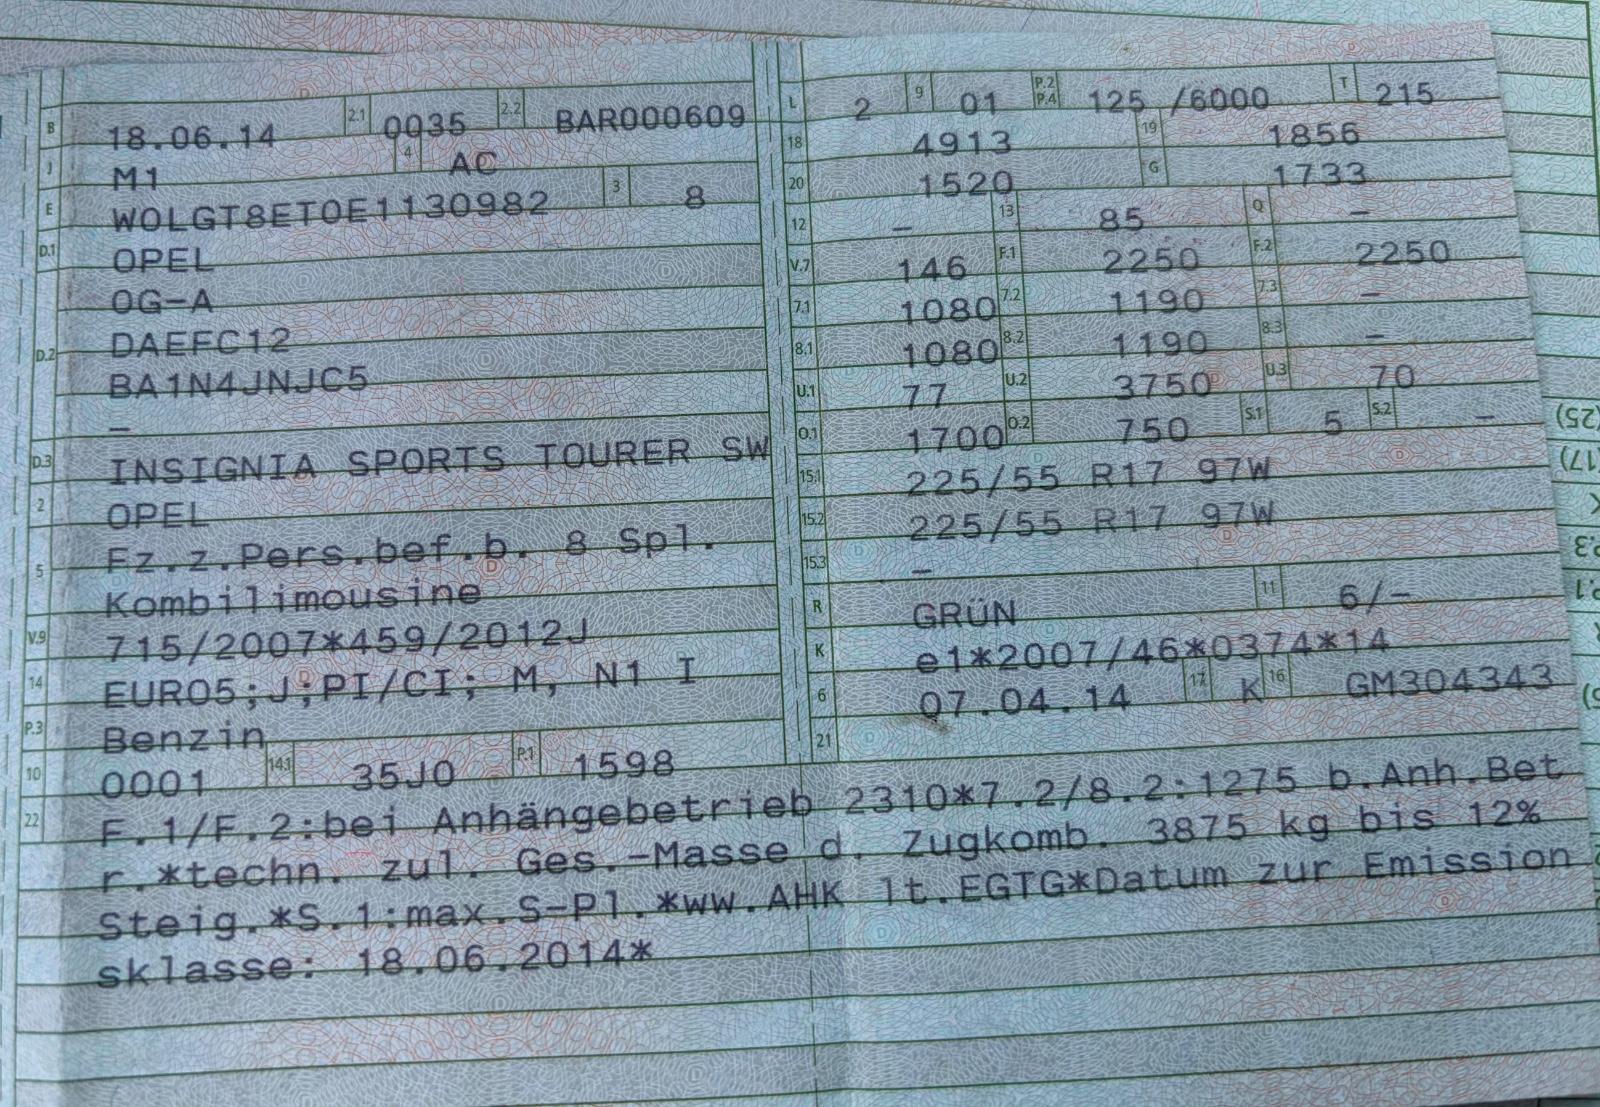 B 18.06.14 2.1 0035 2.2 BAR000609
J M1 4 AC
E W0LGT8ET0E1130982 3 8
D.1 OPEL
D.2 0G-A
DAEFC12
BA1N4JNJC5
–
D.3 INSIGNIA SPORTS TOURER SW
2 OPEL
5 Fz.z.Pers.bef.b. 8 Spl.
Kombilimousine
V.9 715/2007*459/2012J
14 EURO5;J;PI/CI; M, N1 I
P.3 Benzin
10 0001 14.1 35J0 P.1 1598
L 2 9 01 P.2 P.4 125 /6000 T 215
18 4913 19 1856
20 1520 G 1733
12 – 13 85 Q –
V.7 146 F.1 2250 F.2 2250
7.1 1080 7.2 1190 7.3 –
8.1 1080 8.2 1190 8.3 –
U.1 77 U.2 3750 U.3 70
O.1 1700 O.2 750 S.1 5 S.2 –
15.1 225/55 R17 97W
15.2 225/55 R17 97W
15.3 –
R GRÜN 11 6/–
K e1*2007/46*0374*14
6 07.04.14 17 K 16 GM304343
21
22 F.1/F.2:bei Anhängebetrieb 2310*7.2/8.2:1275 b.Anh.Bet
r.*techn. zul. Ges.-Masse d. Zugkomb. 3875 kg bis 12%
Steig.*S.1:max.S-Pl.*ww.AHK lt.EGTG*Datum zur Emission
sklasse: 18.06.2014*
(25)
(17)
P.3
P.1